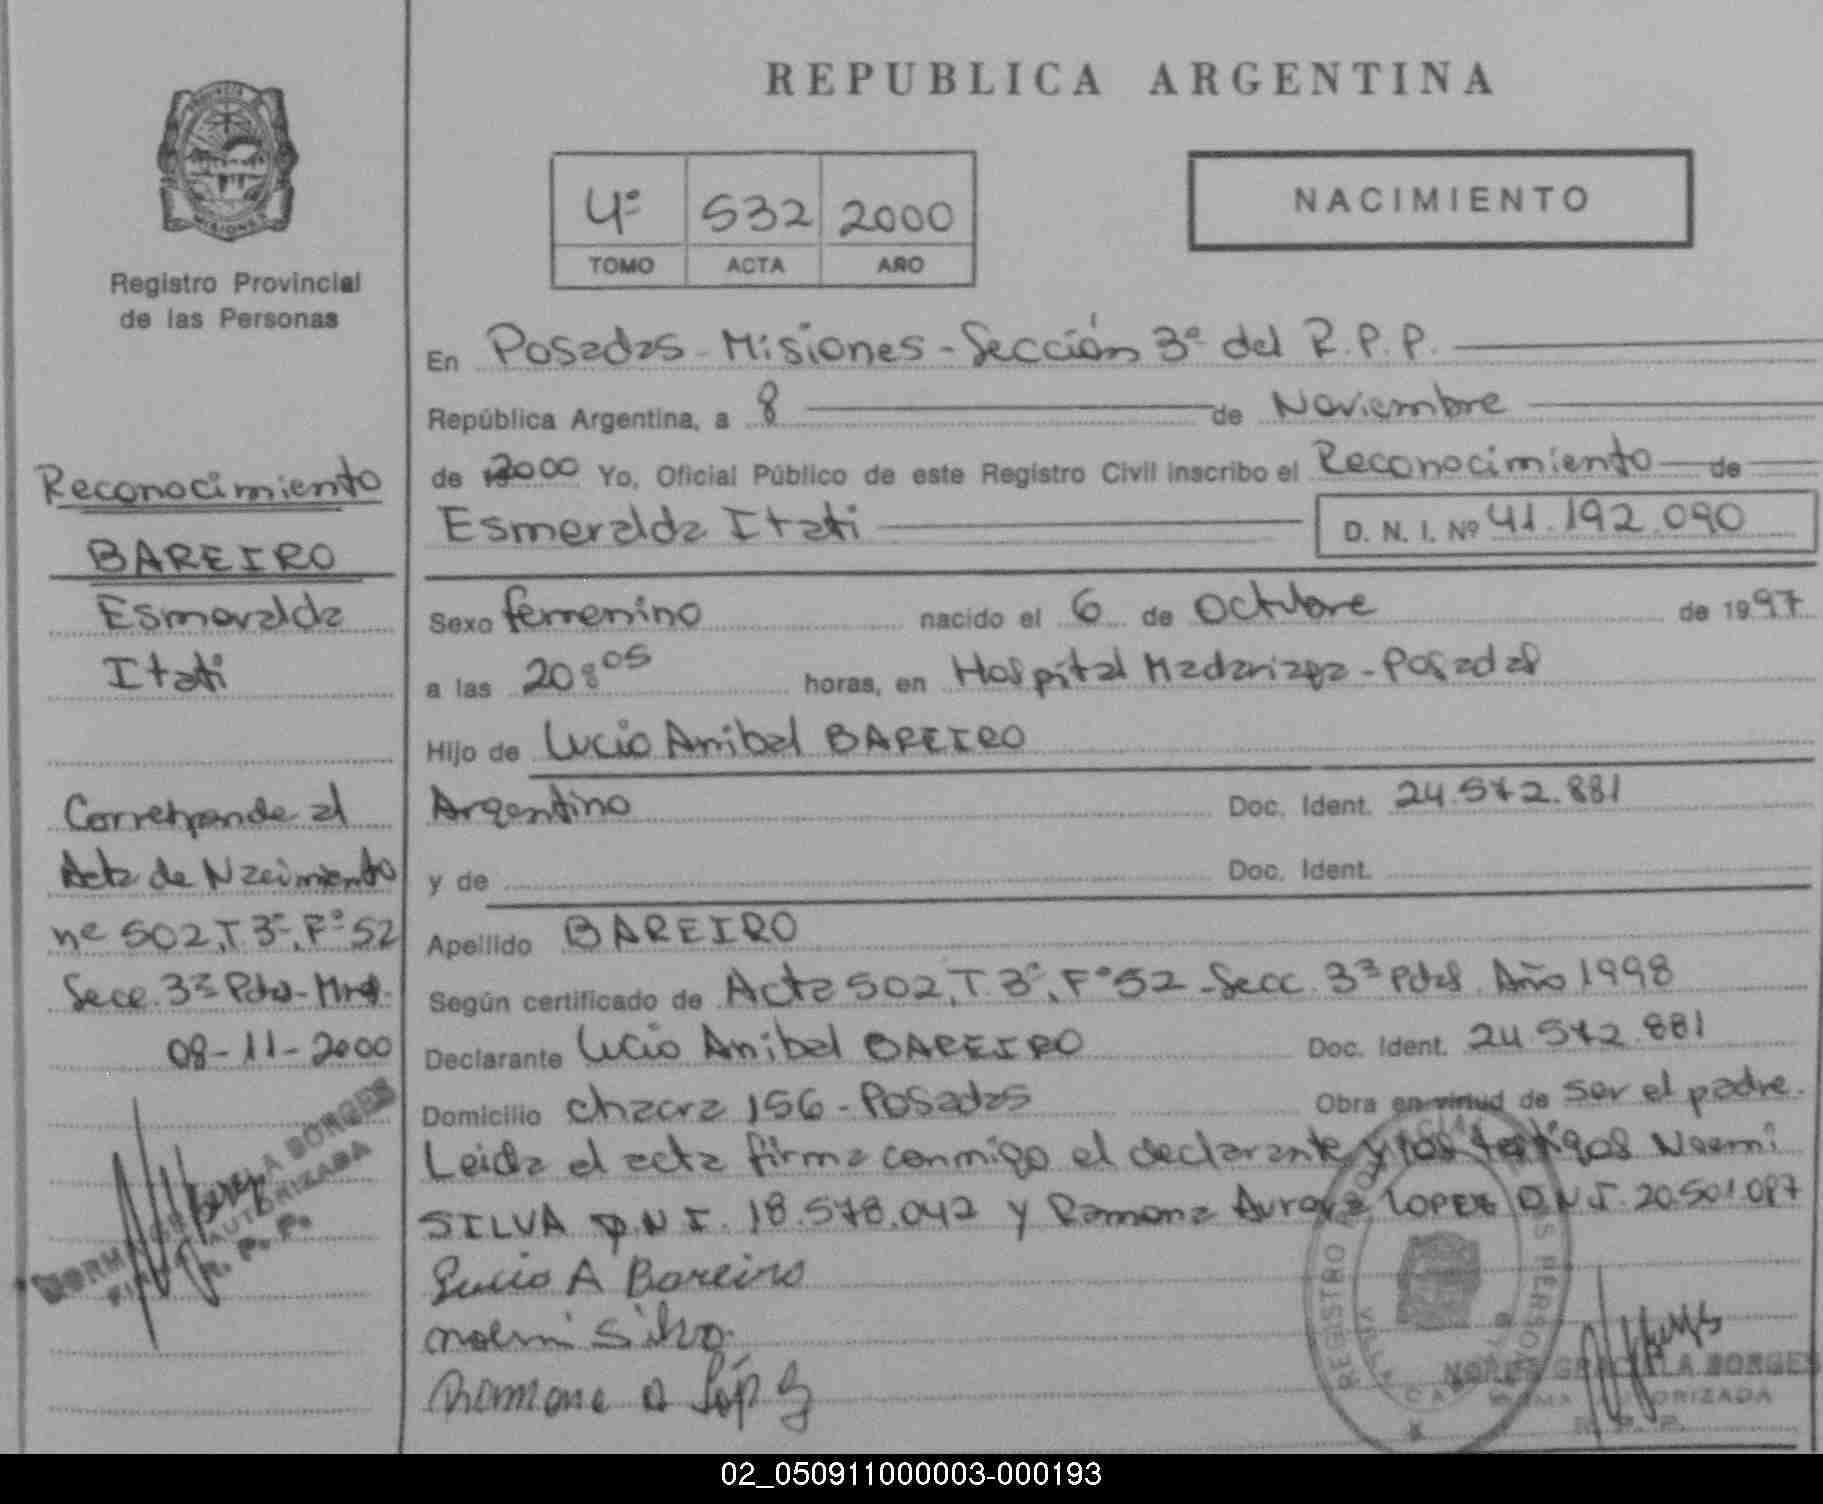 REPUBLICA ARGENTINA
PROVINCIA
MISIONES
Registro Provincial
de las Personas
4º 532 2000
TOMO ACTA AÑO
NACIMIENTO
En Posadas - Misiones - Sección 3º del R.P.P.
República Argentina, a 8 de Noviembre
de 2000 Yo, Oficial Público de este Registro Civil inscribo el Reconocimiento de
Esmeralda Itati D. N. I. Nº 41.192.090
Sexo femenino nacido el 6 de Octubre de 1997
a las 20:05 horas, en Hospital Madariaga - Posadas
Hijo de Lucio Anibal BAREIRO
Argentino Doc. Ident. 24.572.881
y de Doc. Ident.
Apellido BAREIRO
Según certificado de Acta 502, T. 3º, Fº 52 - Secc. 3ª Pdas. Año 1998
Declarante Lucio Anibal BAREIRO Doc. Ident. 24.572.881
Domicilio chacra 156 - Posadas Obra en virtud de ser el padre.
Leida el acta firma conmigo el declarante y los testigos Noemi
SILVA D.N.I. 18.578.042 y Ramona Aurora LOPEZ D.N.I. 20.501.087
Lucio A Bareiro
noemi silva
Ramona A Lópz
NORMA GRACIELA BORGES
FIRMA AUTORIZADA
R. P. P.
Reconocimiento
BAREIRO
Esmeralda
Itati
Corresponde al
Acta de Nacimiento
nº 502, T 3º, Fº 52
Secc. 3ª Pdas - Mnes.
08-11-2000
NORMA GRACIELA BORGES
FIRMA AUTORIZADA
R. P. P.
02_050911000003-000193